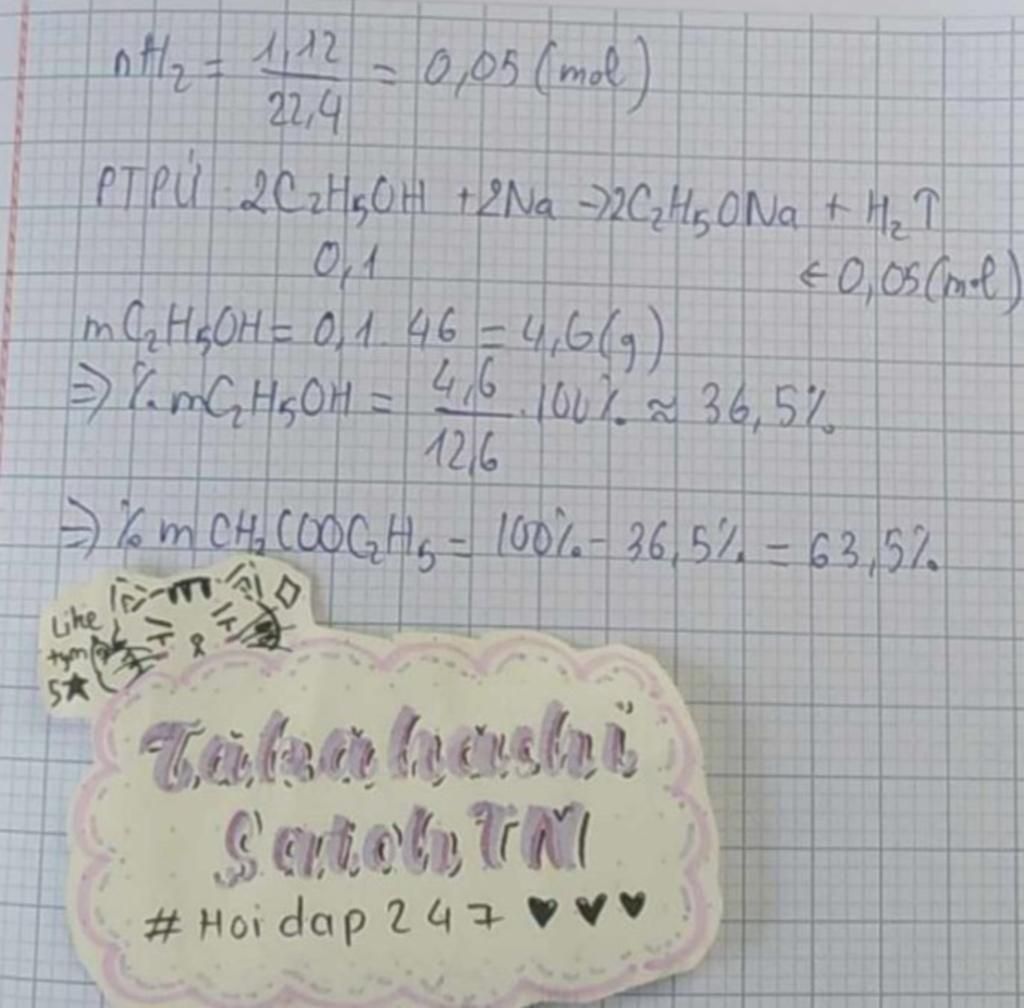 nH₂ = 1,12 / 22,4 = 0,05 (mol)
PTPỨ 2C₂H₅OH + 2Na → 2C₂H₅ONa + H₂↑
0,1 ← 0,05 (mol)
mC₂H₅OH = 0,1 . 46 = 4,6 (g)
⇒ % mC₂H₅OH = 4,6 / 12,6 . 100% ≈ 36,5%
⇒ % m CH₃COOC₂H₅ = 100% - 36,5% = 63,5%
Like
tym
5★
Takahashi
Satoh TN
# Hoi dap 247 ♥♥♥